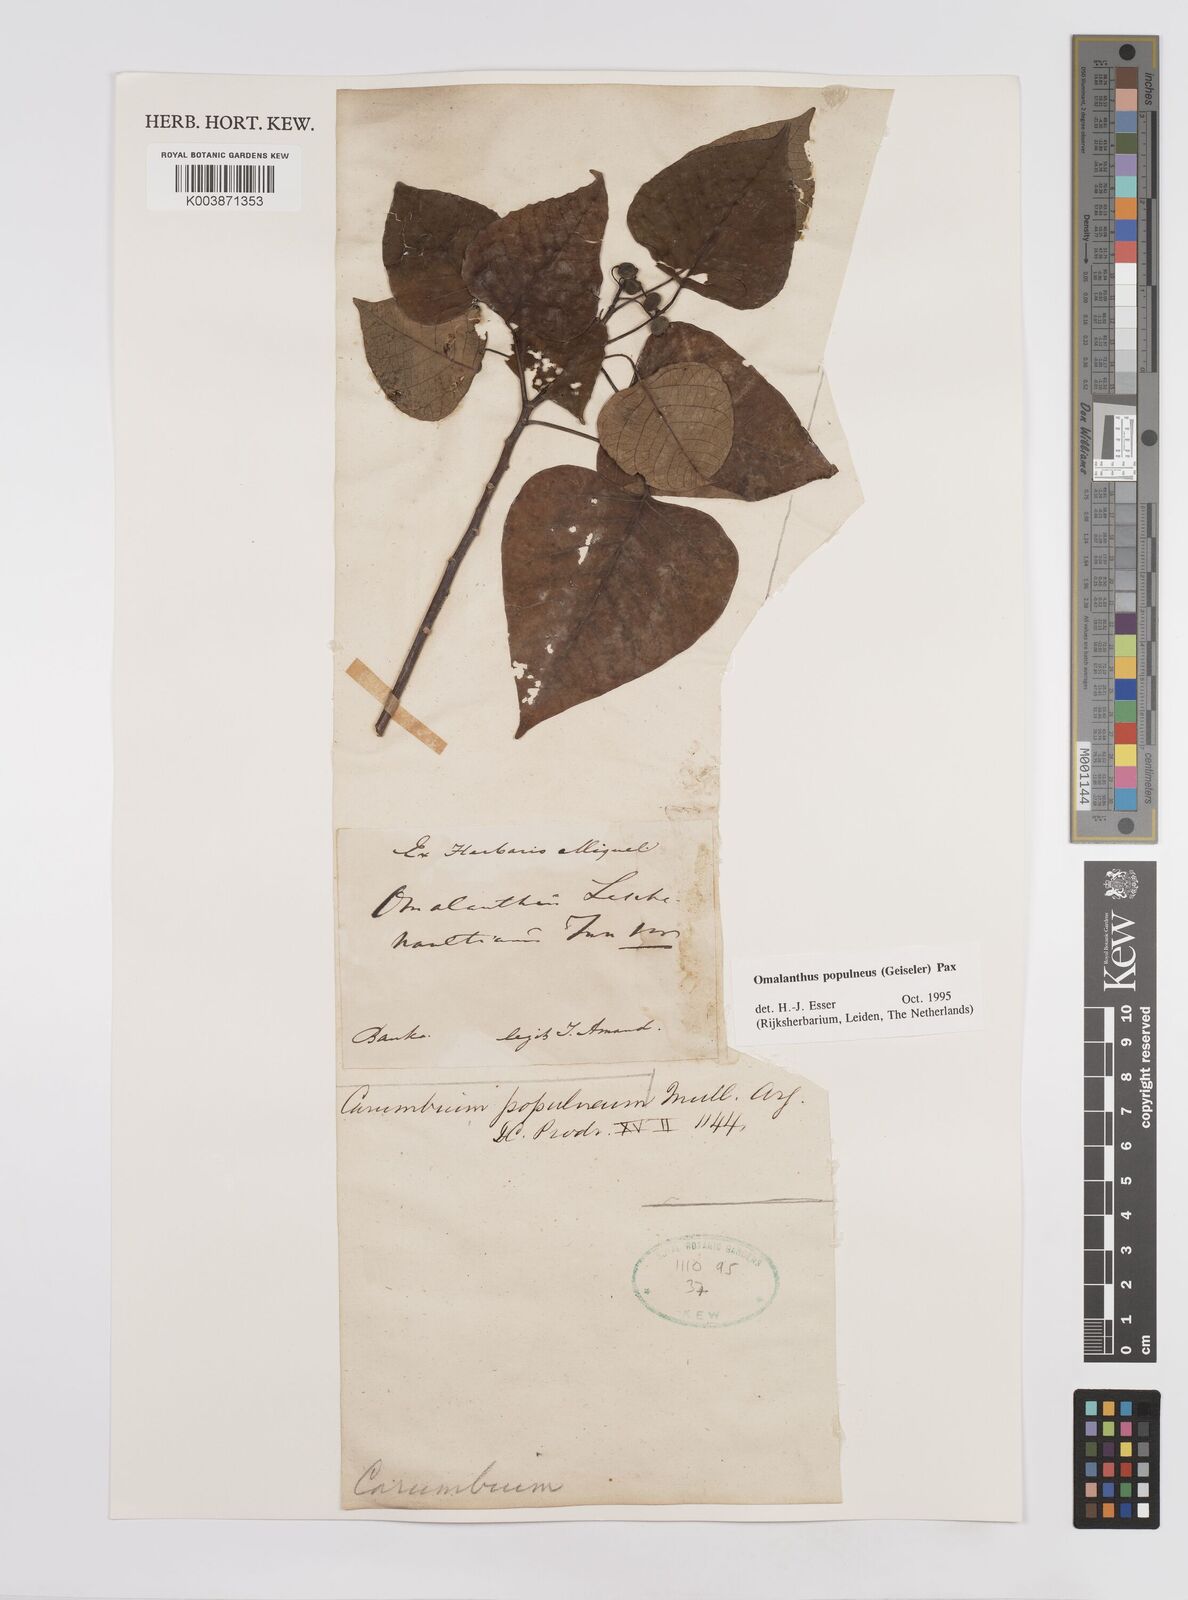 HERB. HORT. KEW.
ROYAL BOTANIC GARDENS KEW
K003871353
Ex Herbario Miquel
Omalanthus Lesche-
naultianus Juss var
Banka. legit T. Amand.
Omalanthus populneus (Geiseler) Pax
det. H.-J. Esser Oct. 1995
(Rijksherbarium, Leiden, The Netherlands)
Carumbium populneum Mull. Arg.
DC. Prodr. XV II 1144.
ROYAL BOTANIC GARDENS
1110 95
37
KEW
Carumbium
inches
Density
Don Williams
M001144
centimeters
Royal Botanic Gardens
Kew
0 1 2 3 4 5 6 7 8 9 10
cm
copyright reserved